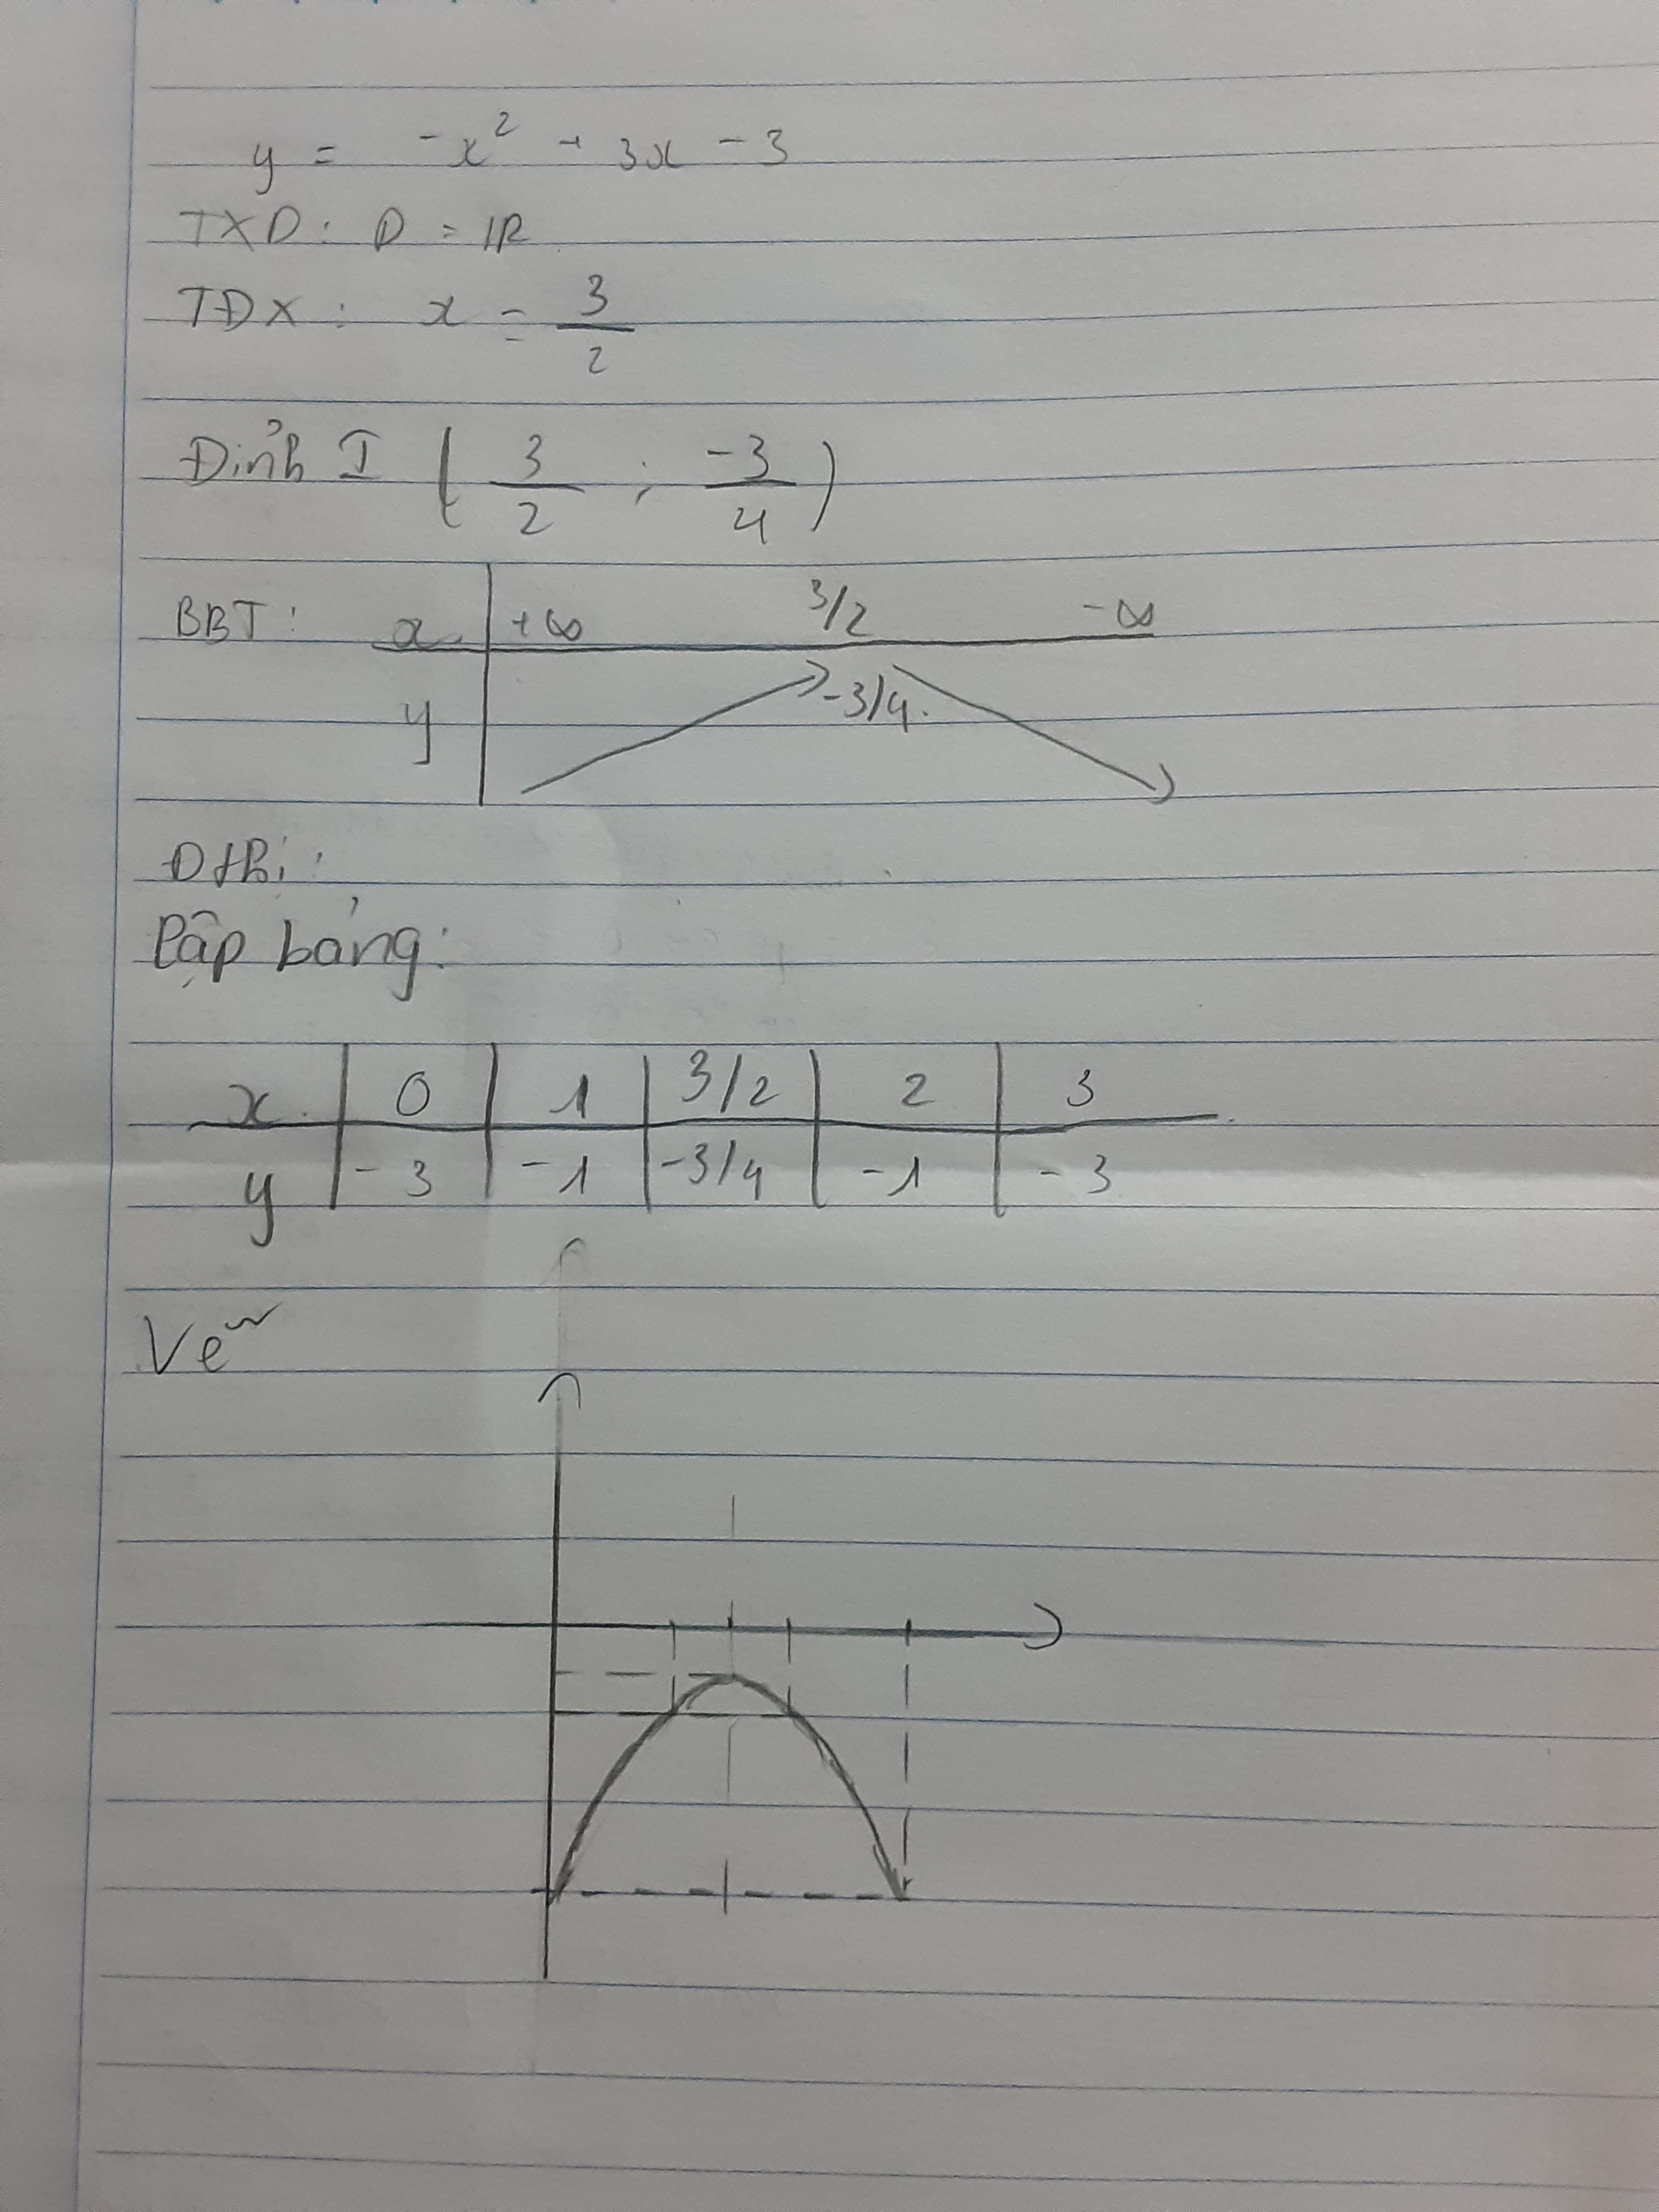 y = -x² + 3x - 3
TXD: D = IR
TĐX: x = 3/2
Đỉnh I (3/2 ; -3/4)
BBT: x +∞ 3/2 -∞
y -3/4.
Đthị:
Lập bảng:
x 0 1 3/2 2 3
y -3 -1 -3/4 -1 -3
Vẽ